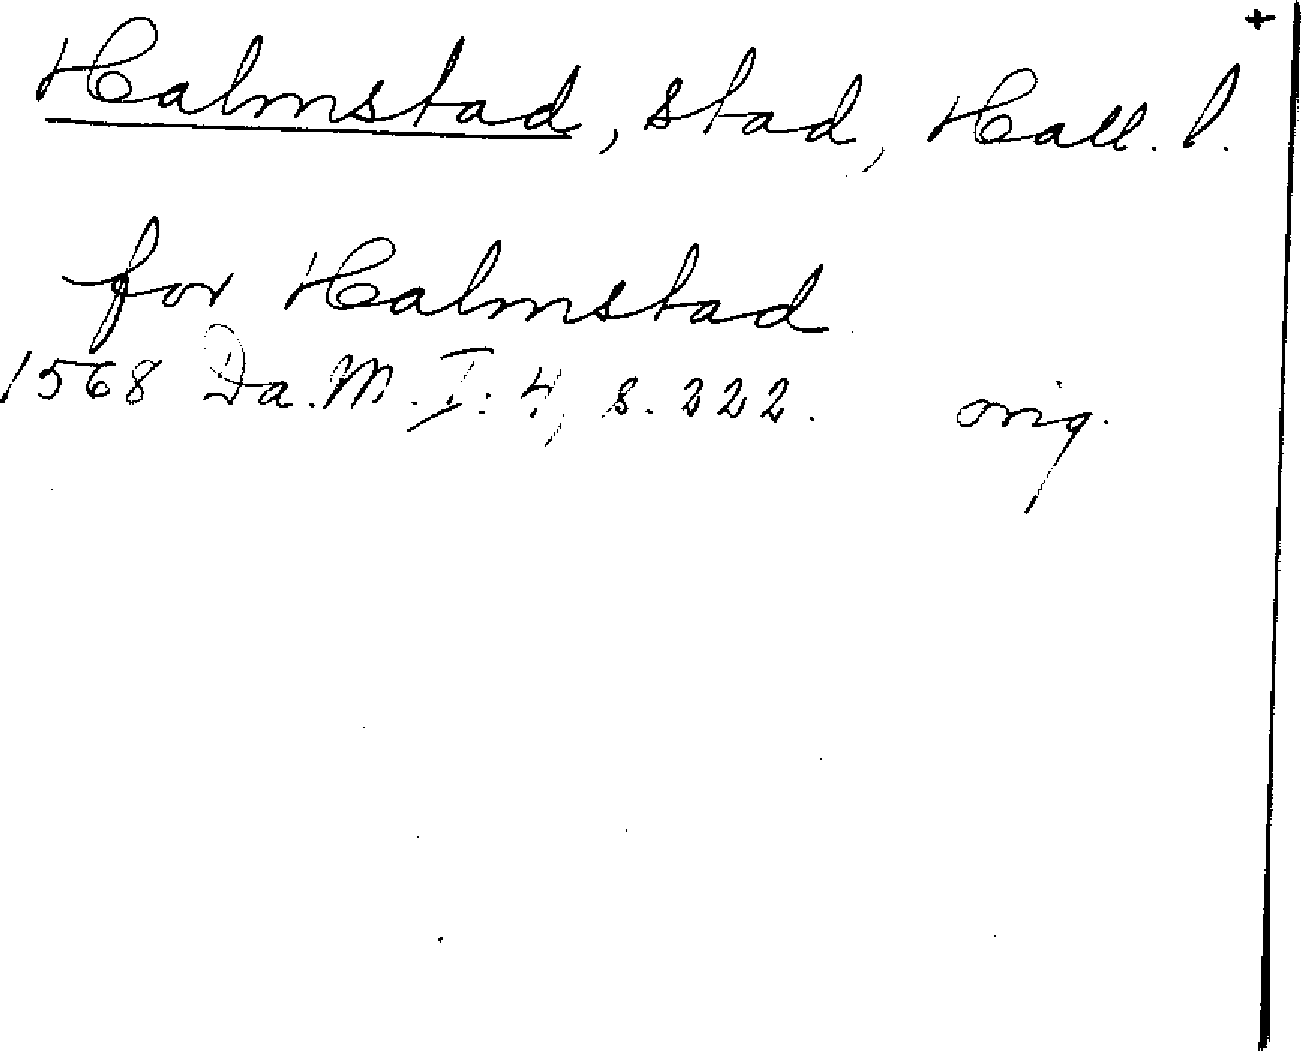 +
Halmstad, stad, Hall. l.
for Halmstad
1568 Da. M. I: 4, s. 222. orig.